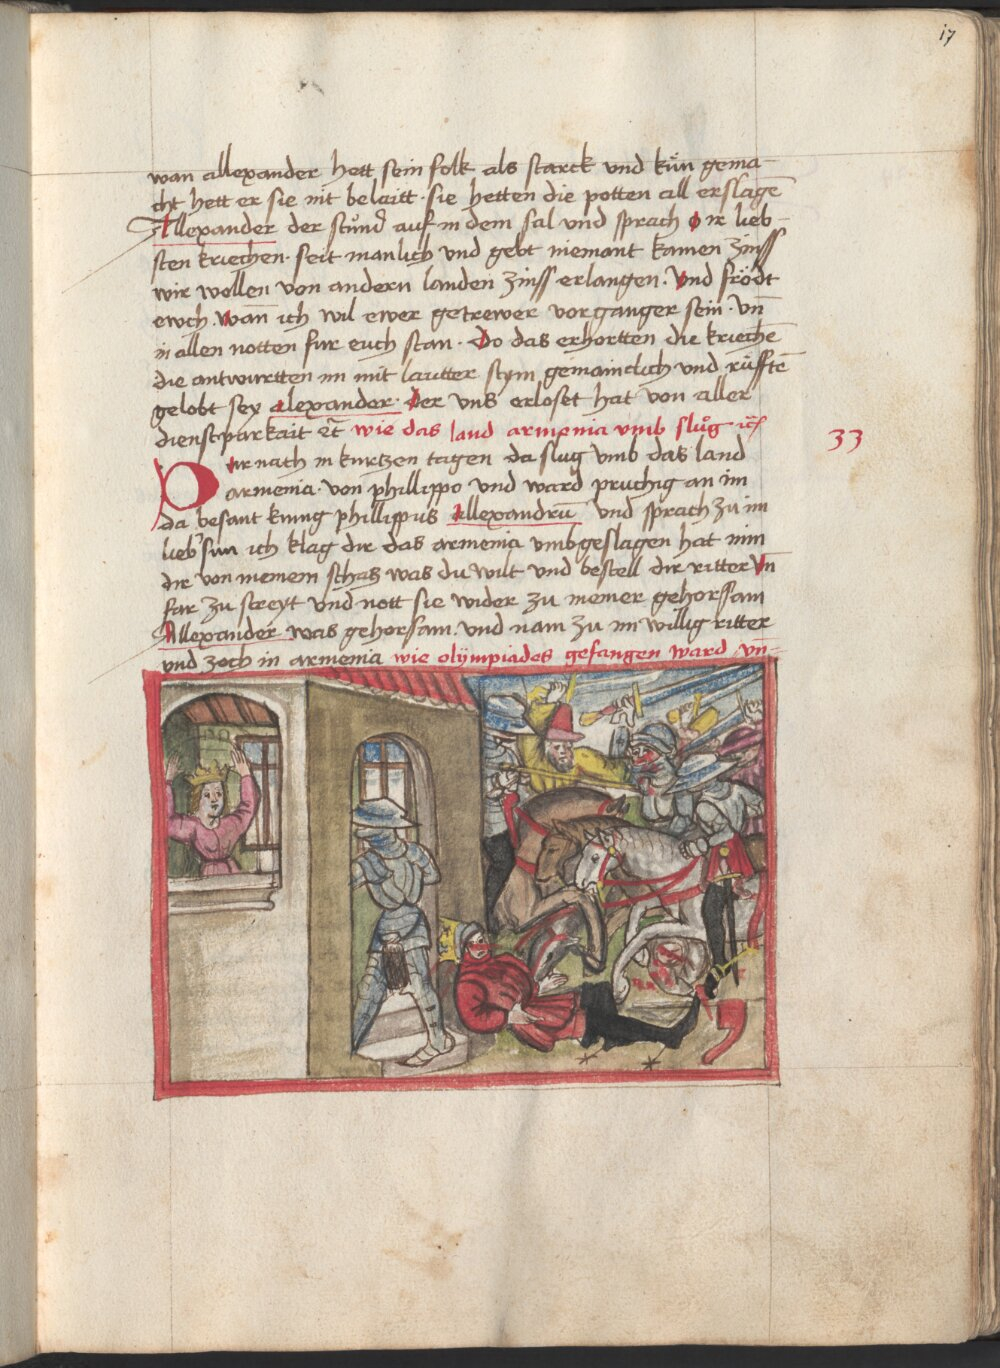 17
wan allexander hett sein folk als starck und kün gema-
cht hett er sie nit belaitt · sie hetten die potten all erslagē
Allexander der stůnd auf in dem sal und sprach O ir lieb-
sten kriechen · seit manlich und gebt niemant kainen zinss
wir wollen von andern landen zinss erlangen. Vnd frödt
ewch. Wan̄ ich wil ewer getrewer vorganger sein · vn̄
in allen notten fur euch stan · Do das erhortten die kriechē
die antwurtten im mit lautter stym gemainclich und rüfftē
gelobt sey alexander · der vns erloset hat von aller
dienstparkait etc̄ wie das land armenia vmb slůg etc̄
33
Dar nach in kurtzen tagen da slug vmb das land
armenia · von phillippo und ward pruchig an im
da besant kunig phillippus Allexandrū und sprach zu im
lieb' sun ich klag dir das armenia vmbgeslagen hat nim
dir von meinem schatz was du wilt und bestell dir ritter Vn̄
far zu streyt Vnd nott sie wider zu meiner gehorssam
Allexander was gehorssam. und nam zu im willig ritter
und zoch in armenia wie olÿmpiades gefangen ward vn̄-